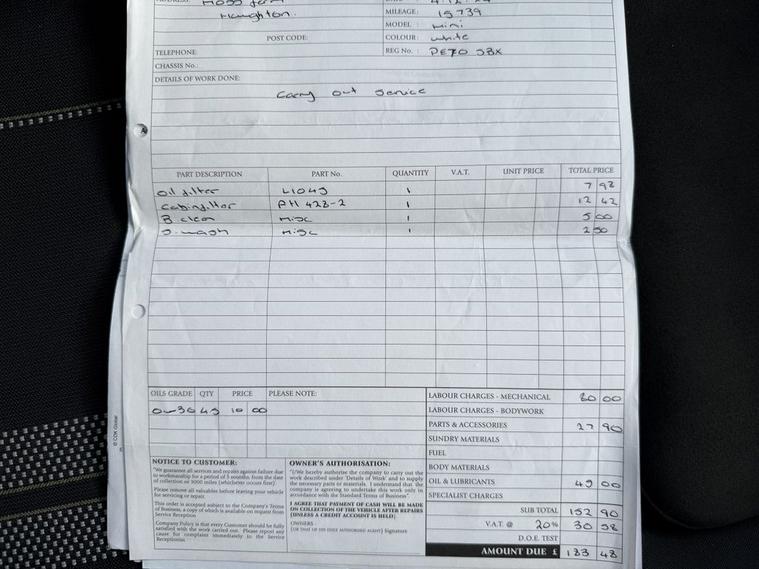 Houghton.
MILEAGE: 15739
MODEL: Mini
POST CODE: COLOUR: white
TELEPHONE: REG No.: PE70
CHASSIS No.:
DETAILS OF WORK DONE:
Carry out Service
PART DESCRIPTION PART No. QUANTITY V.A.T. UNIT PRICE TOTAL PRICE
Oil filter L1049 1 7 98
Cabin filter PH 428-2 1 12 42
B. clean Misc 1 5 00
S. wash Misc 1 2 50
OILS GRADE QTY PRICE PLEASE NOTE: LABOUR CHARGES - MECHANICAL 80 00
0-30 4.5 10 00 LABOUR CHARGES - BODYWORK
PARTS & ACCESSORIES 27 90
SUNDRY MATERIALS
FUEL
BODY MATERIALS
OIL & LUBRICANTS 45 00
SPECIALIST CHARGES
SUB TOTAL 152 90
V.A.T. @ 20% 30 58
D.O.E. TEST
AMOUNT DUE £ 183 48
NOTICE TO CUSTOMER:
"We guarantee all services and repairs against failure due
to workmanship for a period of 3 months from the date
of collection or 3000 miles (whichever occurs first).
Please remove all valuables before leaving your vehicle
for servicing or repair.
This order is accepted subject to the Company's Terms
of Business, a copy of which is available on request from
Service Reception
Company Policy is that every Customer should be fully
satisfied with the work carried out. Please report any
cause for complaint immediately to the Service
Receptionist.
OWNER'S AUTHORISATION:
"I/We hereby authorise the company to carry out the
work described under 'Details of Work' and to supply
the necessary parts or materials. I understand that the
company is agreeing to undertake this work only in
accordance with the Standard Terms of Business".
I AGREE THAT PAYMENT OF CASH WILL BE MADE
ON COLLECTION OF THE VEHICLE AFTER REPAIRS
(UNLESS A CREDIT ACCOUNT IS HELD).
OWNERS
(OR THAT OF HIS/HER AUTHORISED AGENT) Signature